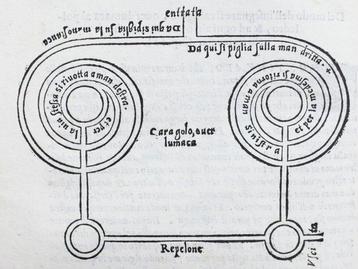 entrata
Da qui si piglia su la man stanca
Da qui si piglia sulla man dritta. +
la uia stessa si riuolta a man destra.
et per
et per la medesma si ritorna a man
Sinistra
Caragolo, ouer
lumaca
Repelone
Vsci